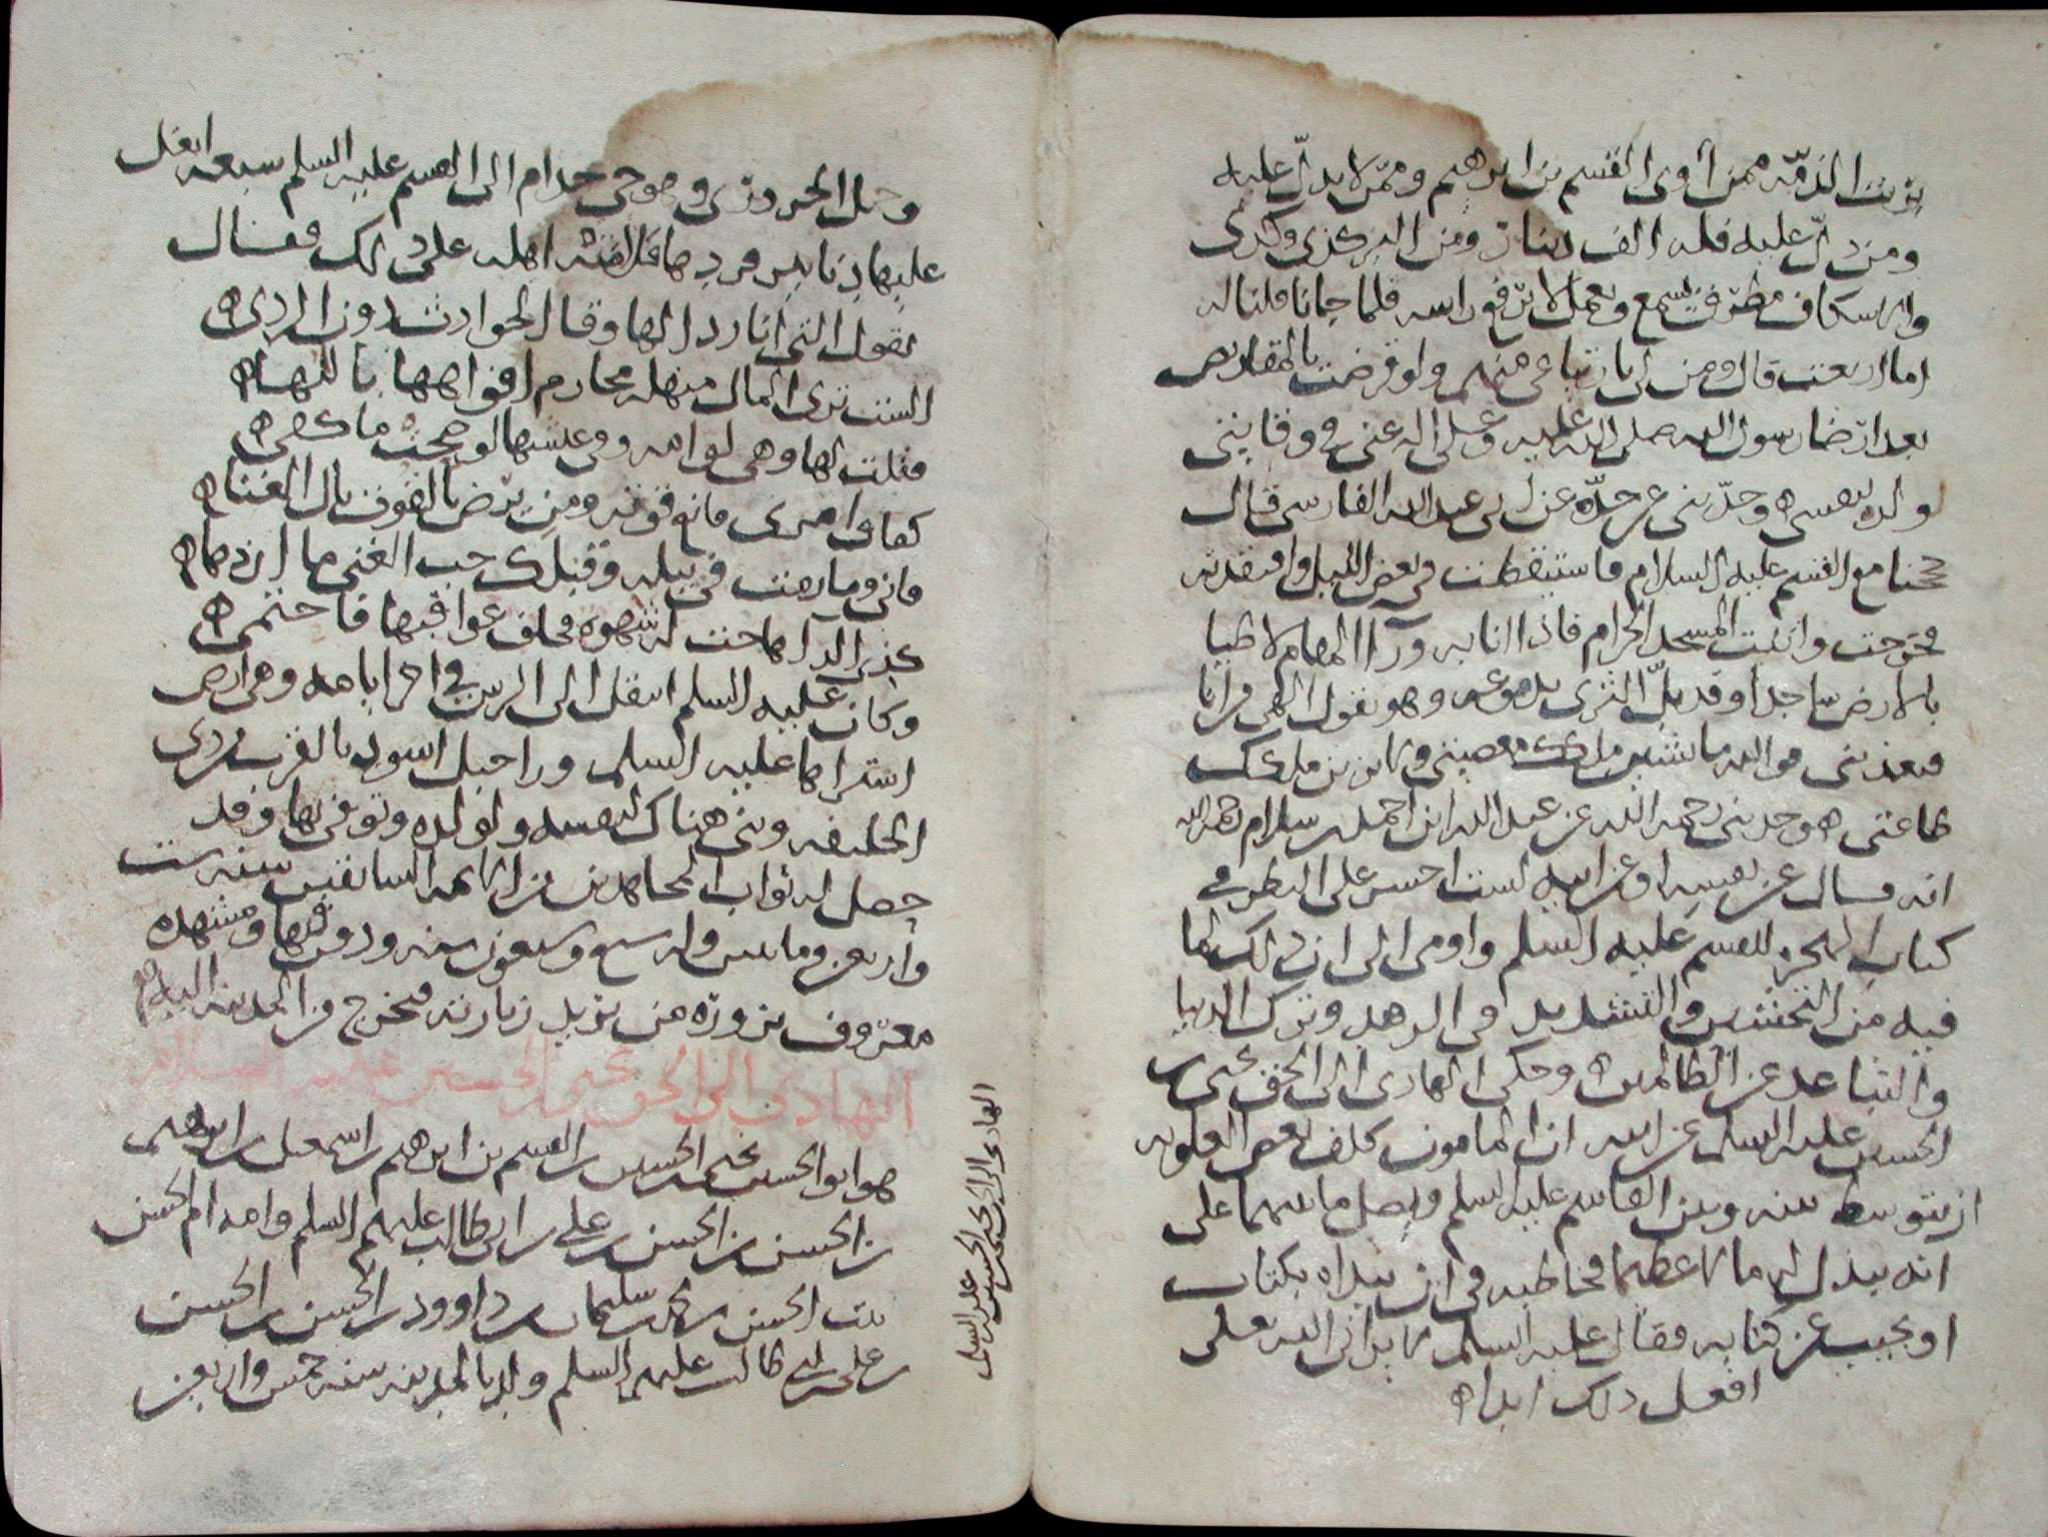 برئت الذمّة ممن آوى القسم بن ابرهيم وممّن لا يدلّ عليه
ومن دلّ عليه فله الف دينار ومن البز كذى وكذى
والاسكاف مطرق يسمع ويعمل لا يرفع راسه فلما جانا قلنا له
اما ارتعت قال ومن لي بارتياعي منهم ولو قرضت بالمقاريض
بعد ارضا رسول الله صلى الله عليه وعلى اله عني في وقايتي
ولده بنفسي ه وحدّثني عن جدّه عن ابي عبد الله الفارسي قال
حججنا مع القسم عليه السلام فاستيقظت في بعض الليل وافتقدته
فخرجت واتيت المسجد الحرام فاذا انا به ورآ المقام لاطيا
بالارض ساجدا وقد بلّ الثرى بدموعه وهو يقول الهي من انا
فتعذبني فوالله ما تشين ملكك معصيتي ولا يزين ملكك
طاعتي ه وحدثني رحمه الله عن عبد الله ابن احمد بن سلام رحمه الله
انه قال عن نفسه او عن ابيه لست احسر على النظر في
كتاب الهجرة للقسم عليه السلم واومى الى ان ذلك لما
فيه من التخشين والتشديد في الزهد وترك الدنيا
والتباعد عن الظالمين ه وحكى الهادى الى الحق يحيى بن
الحسين عليه السلم عن ابيه ان المامون كلف بعض العلويه
ان يتوسط بينه وبين القاسم عليه السلم ويصل ما بينهما على
انه يبذل له مالا عظيما فخاطبه في ان يبداه بكتاب
او يجيب عن كتابه فقال عليه السلم لا يراني الله تعلى
افعل ذلك ابدا ه
وحمل الحروري وهو حي جذام الى القسم عليه السلم سبعه ابغل
عليها دنانير فردها فلامته اهله على ذلك فقال
تقول التي انا ردا لها وقا الحوادث دون الردى ه
الست ترى المال منهله مخارم افواهها باللها ه
فقلت لها وهي لوامه وفي عيشها لو صحت ما كفى ه
كفاف امرى قانع قوته ومن يرض بالقوت نال الغنا ه
فاني وما رمت في نيله وقبلك حب الغنى ما ازدها ه
كذى الدا هاجت له شهوه فخاف عواقبها فاحتمى ه
وكان عليه السلم انتقل الى الرس في اخر ايامه وهي ارض
اشتراها عليه السلم ورا جبل اسود بالقرب من ذي
الحليفه وبنى هناك لنفسه ولولده وتوفي بها وقد
حصل له ثواب المجاهدين من الائمه السابقين سنه ست
واربعين ومايتين وله سبع وسبعون سنه ودفن فيها ومشهده
معروف يزوره من يريد زيارته فيخرج من المدينه اليه ه
الهادى الى الحق يحيى بن الحسين عليه السلام
هو ابو الحسين يحيى بن الحسين بن القسم بن ابرهيم بن اسمعيل بن ابرهيم
بن الحسن بن الحسن بن علي بن ابي طالب عليهم السلم وامه ام الحسن
بنت الحسن بن محمد بن سليمان بن داوود بن الحسن بن الحسن
بن علي بن ابي طالب عليهم السلم ولد بالمدينه سنه خمس واربعين
الهادى الى الحق يحيى بن الحسين عليه السلم